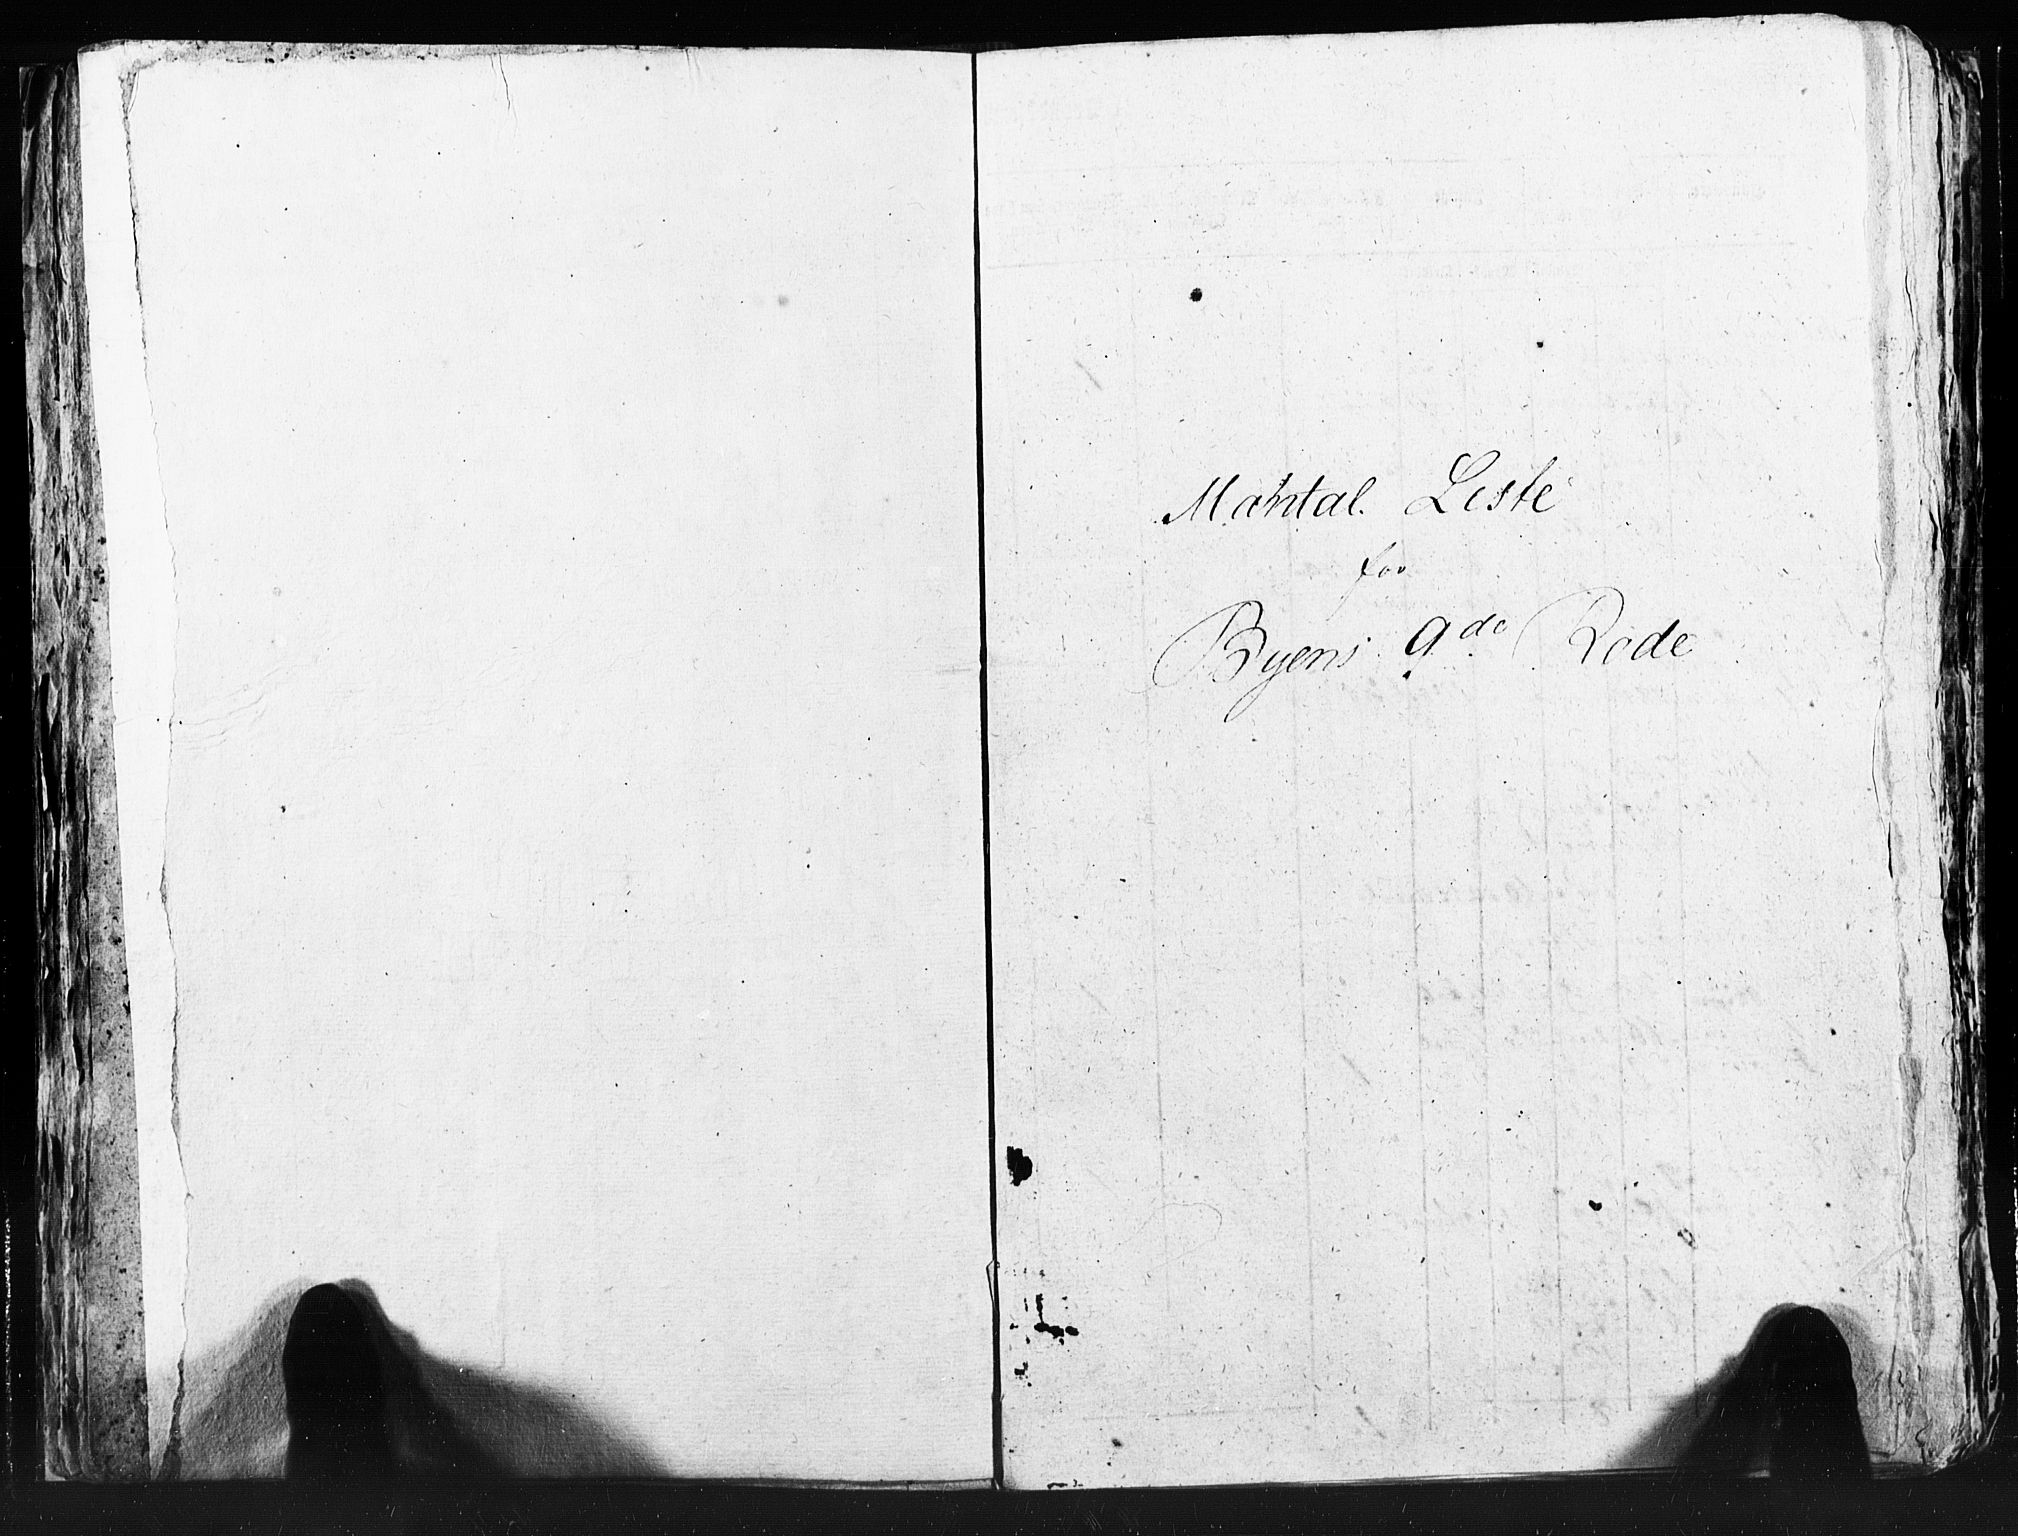 Mantal Liste
for
Byens 9de Rode